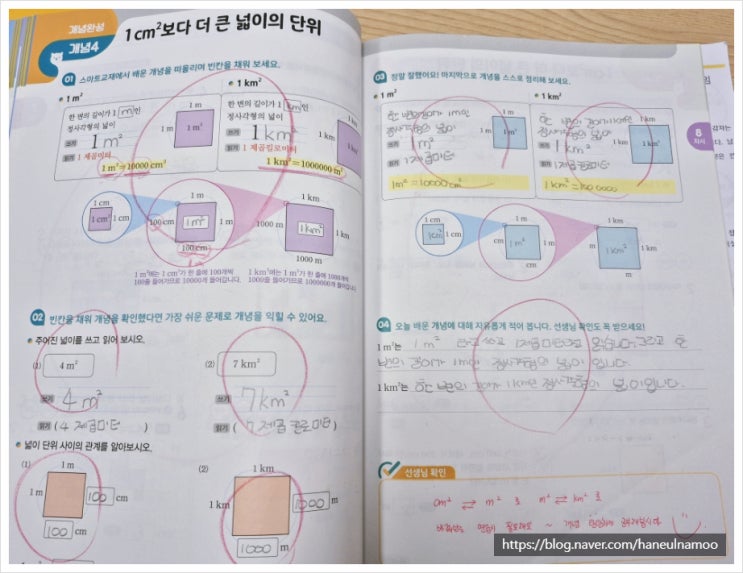 개념완성
개념4
1 cm²보다 더 큰 넓이의 단위
01 스마트교재에서 배운 개념을 떠올리며 빈칸을 채워 보세요.
1 m²
한 변의 길이가 1 m인
정사각형의 넓이
쓰기 1 m²
읽기 1 제곱미터
1 m²=10000 cm²
1 m
1 m²
1 km²
한 변의 길이가 1 km인
정사각형의 넓이
쓰기 1 km²
읽기 1 제곱킬로미터
1 km²=1000000 m²
1 km
1 km
1 cm
1 cm² 1 cm
1 m
100 cm 1 m² 1 m
100 cm
1 km
1000 m 1 km² 1 km
1000 m
1 m²에는 1 cm²가 한 줄에 100개씩
100줄 들어가므로 10000개 들어갑니다.
1 km²에는 1 m²가 한 줄에 1000개씩
1000줄 들어가므로 1000000개 들어갑니다.
02 빈칸을 채워 개념을 확인했다면 가장 쉬운 문제로 개념을 익힐 수 있어요.
주어진 넓이를 쓰고 읽어 보시오.
(1) 4 m²
쓰기 4 m²
읽기 ( 4 제곱미터 )
(2) 7 km²
쓰기 7 km²
읽기 ( 7 제곱 킬로미터 )
넓이 단위 사이의 관계를 알아보시오.
(1) 1 m
1 m 100 cm
100 cm
(2) 1 km
1 km 1000 m
1000 m
03 정말 잘했어요! 마지막으로 개념을 스스로 정리해 보세요.
1 m²
한 변의 길이가 1m인
정사각형의 넓이
쓰기 1 m²
읽기 1 제곱미터
1 m²=10000 cm²
1 m
1 m² 1 m
1 km²
한 변의 길이가 1km인
정사각형의 넓이
쓰기 1 km²
읽기 1 제곱킬로미터
1 km
1 km 1 km²
1 cm
1 cm² 1 cm
1 m
cm 1 m² 1 m
cm
1 km
m 1 km² 1 km
m
04 오늘 배운 개념에 대해 자유롭게 적어 봅니다. 선생님 확인도 꼭 받으세요!
1 m²는 1 m² 라고 쓰고 1제곱미터라고 읽습니다. 그리고 한
변의 길이가 1m인 정사각형의 넓이 입니다.
1 km²는 한 변의 길이가 1km인 정사각형의 넓이입니다.
선생님 확인
cm² ⇄ m² 로 m² ⇄ km² 로
https://blog.naver.com/haneulnamoo